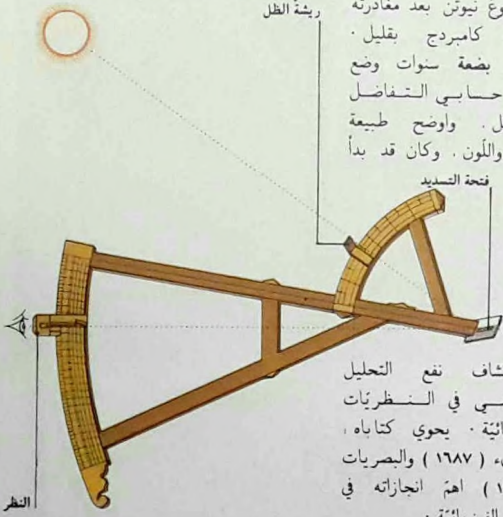 نيوتن بعد مغادرته
كامبردج بقليل .
بضعة سنوات وضع
حسابي التفاضل
واوضح طبيعة
واللّون . وكان قد بدأ
ريشة الظل
فتحة التسديد
نفع التحليل
في النظريّات
يحوي كتاباه ،
( ١٦٨٧ ) والبصريات
) اهمّ انجازاته في
النظر